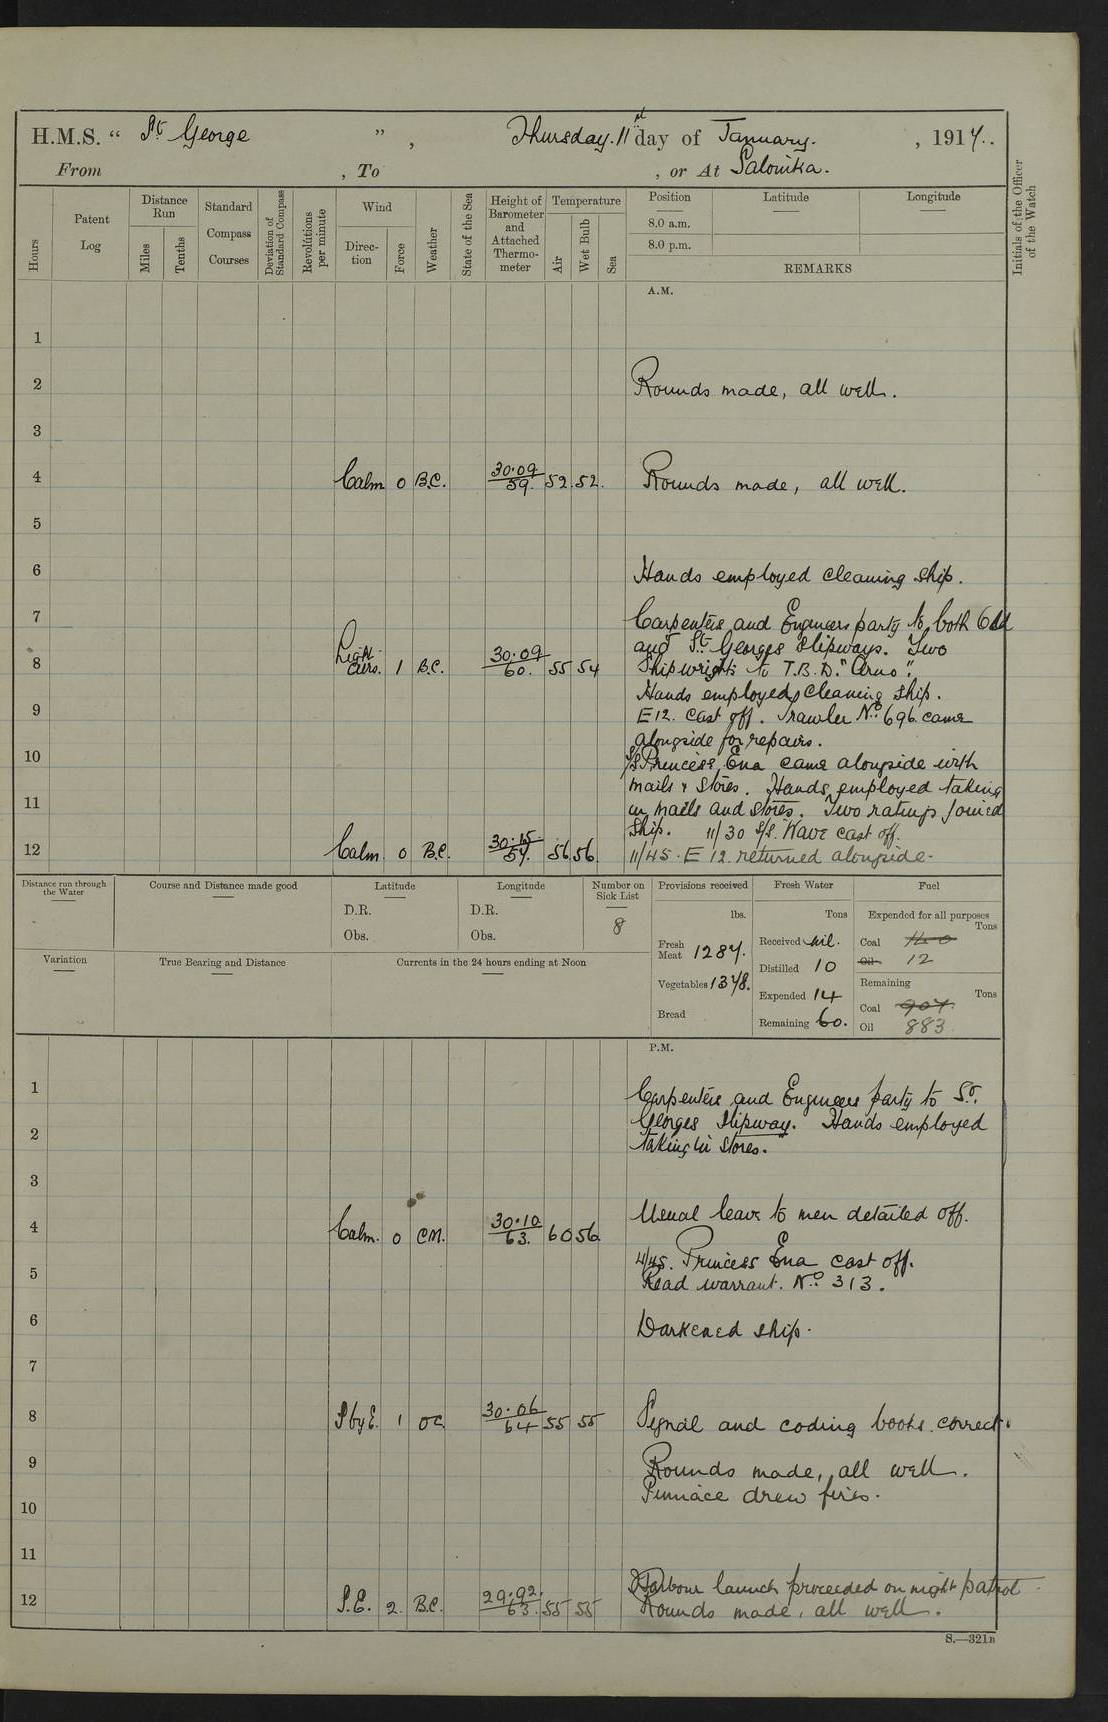 H.M.S. “ St George ” , Thursday. 11st day of January. , 1917..
From , To , or At Salonika.
Hours
Patent Log
Distance Run
Miles
Tenths
Standard Compass Courses
Deviation of Standard Compass
Revolutions per minute
Wind
Direc-tion
Force
Weather
State of the Sea
Height of Barometer and Attached Thermo-meter
Temperature
Air
Wet Bulb
Sea
Position
8.0 a.m.
8.0 p.m.
Latitude
Longitude
REMARKS
Initials of the Officer of the Watch
A.M.
1
2 Rounds made, all well.
3
4 Calm 0 B.C. 30.09 59. 52. 52. Rounds made, all well.
5
6 Hands employed cleaning ship.
7 Carpenters and Engineers party to both
and St. Georges Slipways. Two
8 Light airs. 1 B.C. 30.09 60. 55 54 Shipwrights to T.B.D. "Arno".
Hands employed cleaning ship.
9 E12. cast off. Trawler No. 696 came
alongside for repairs.
10 S/S Princess Ena came alongside with
mails & stores. Hands employed taking
11 in mails and stores. Two ratings joined
ship. 11/30 S/S. Wave cast off.
12 Calm. 0 B.C. 30.15 57. 56 56. 11/45. E 12. returned alongside.
Distance run through the Water
Course and Distance made good
Latitude
D.R.
Obs.
Longitude
D.R.
Obs.
Number on Sick List
8
Provisions received
lbs.
Fresh Meat 1287.
Vegetables 1378.
Bread
Fresh Water
Tons
Received nil.
Distilled 10
Expended 14
Remaining 60.
Fuel
Expended for all purposes
Tons
Coal
Oil 12
Remaining
Tons
Coal 907
Oil 883
Variation
True Bearing and Distance
Currents in the 24 hours ending at Noon
P.M.
1 Carpenters and Engineers party to St.
Georges Slipway. Hands employed
2 taking in stores.
3
4 Calm. 0 C.M. 30.10 63. 60 56. Usual leave to men detailed off.
4/45. Princess Ena cast off.
5 Read warrant. No. 313.
6 Darkened ship.
7
8 S by E. 1 OC 30.06 64 55 55 Signal and coding books correct.
9 Rounds made, all well.
10 Pinnace drew fires.
11
Harbour launch proceeded on night patrol
12 S.E. 2. B.C. 29.92. 63. 55 55 Rounds made, all well.
S.—321B